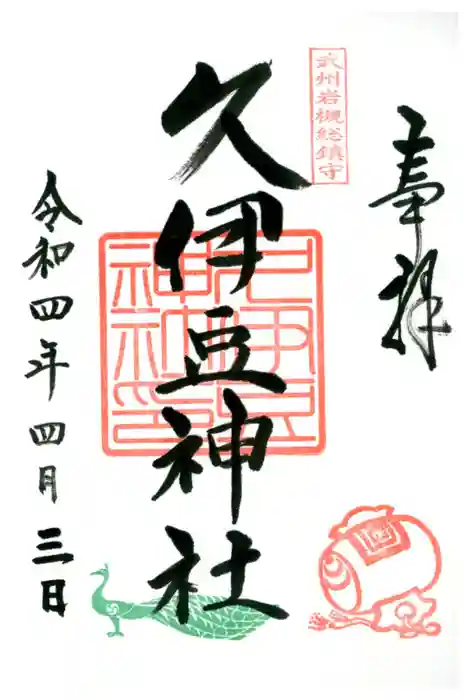 奉拝
武州岩槻総鎮守
久伊豆神社
久伊豆神社印
令和四年四月三日